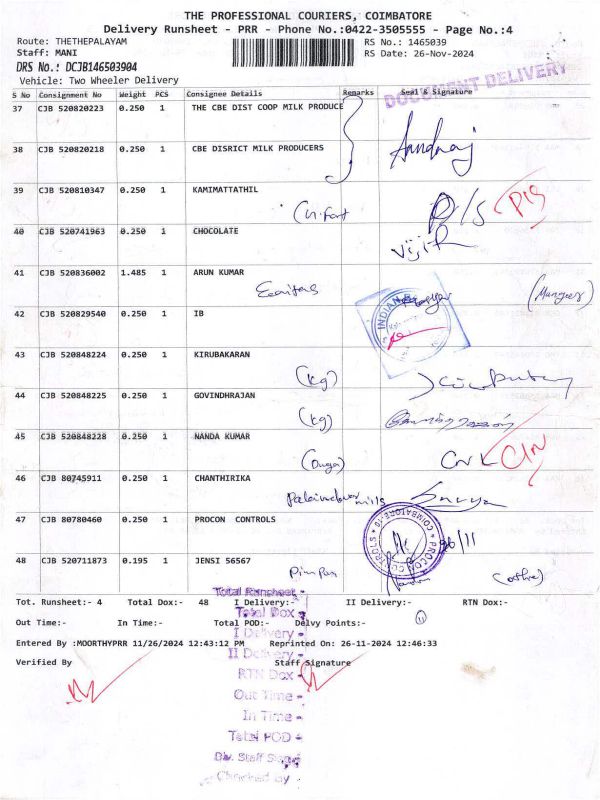 THE PROFESSIONAL COURIERS, COIMBATORE
Delivery Runsheet - PRR - Phone No.:0422-3505555 - Page No.:4
Route: THETHEPALAYAM RS No.: 1465039
Staff: MANI RS Date: 26-Nov-2024
DRS No.: DCJB146503904
Vehicle: Two Wheeler Delivery
DOCUMENT DELIVERY
S No Consignment No Weight PCS Consignee Details Remarks Seal & Signature
37 CJB 520820223 0.250 1 THE CBE DIST COOP MILK PRODUCE
38 CJB 520820218 0.250 1 CBE DISRICT MILK PRODUCERS
39 CJB 520810347 0.250 1 KAMIMATTATHIL
P/S
40 CJB 520741963 0.250 1 CHOCOLATE
41 CJB 520836002 1.485 1 ARUN KUMAR
42 CJB 520829540 0.250 1 IB
INDIAN B
43 CJB 520848224 0.250 1 KIRUBAKARAN
(kg)
44 CJB 520848225 0.250 1 GOVINDHRAJAN
(kg)
45 CJB 520848228 0.250 1 NANDA KUMAR
46 CJB 80745911 0.250 1 CHANTHIRIKA
mills Surya
47 CJB 80780460 0.250 1 PROCON CONTROLS
PROCON CONTROLS COIMBATORE-10
26/11
48 CJB 520711873 0.195 1 JENSI 56567
Tot. Runsheet:- 4 Total Dox:- 48 I Delivery:- II Delivery:- RTN Dox:-
Out Time:- In Time:- Total POD:- Delvy Points:- 11
Entered By :MOORTHYPRR 11/26/2024 12:43:12 PM Reprinted On: 26-11-2024 12:46:33
Verified By Staff Signature
Total Runsheet -
Total Dox -
I Delivery -
II Delivery -
RTN Dox -
Out Time -
In Time -
Total POD -
Div. Staff Sign -
Checked By -